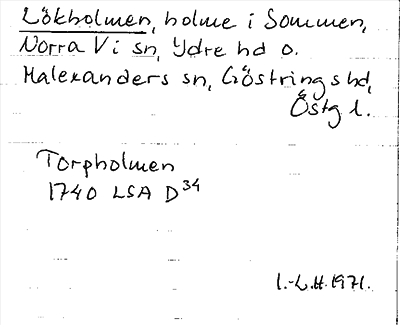 Lökholmen, holme i Sommen,
Norra Vi sn, Ydre hd o.
Malexanders sn, Göstrings hd,
Östg l.
Torpholmen
1740 LSA D34
I.-L.H. 1971.